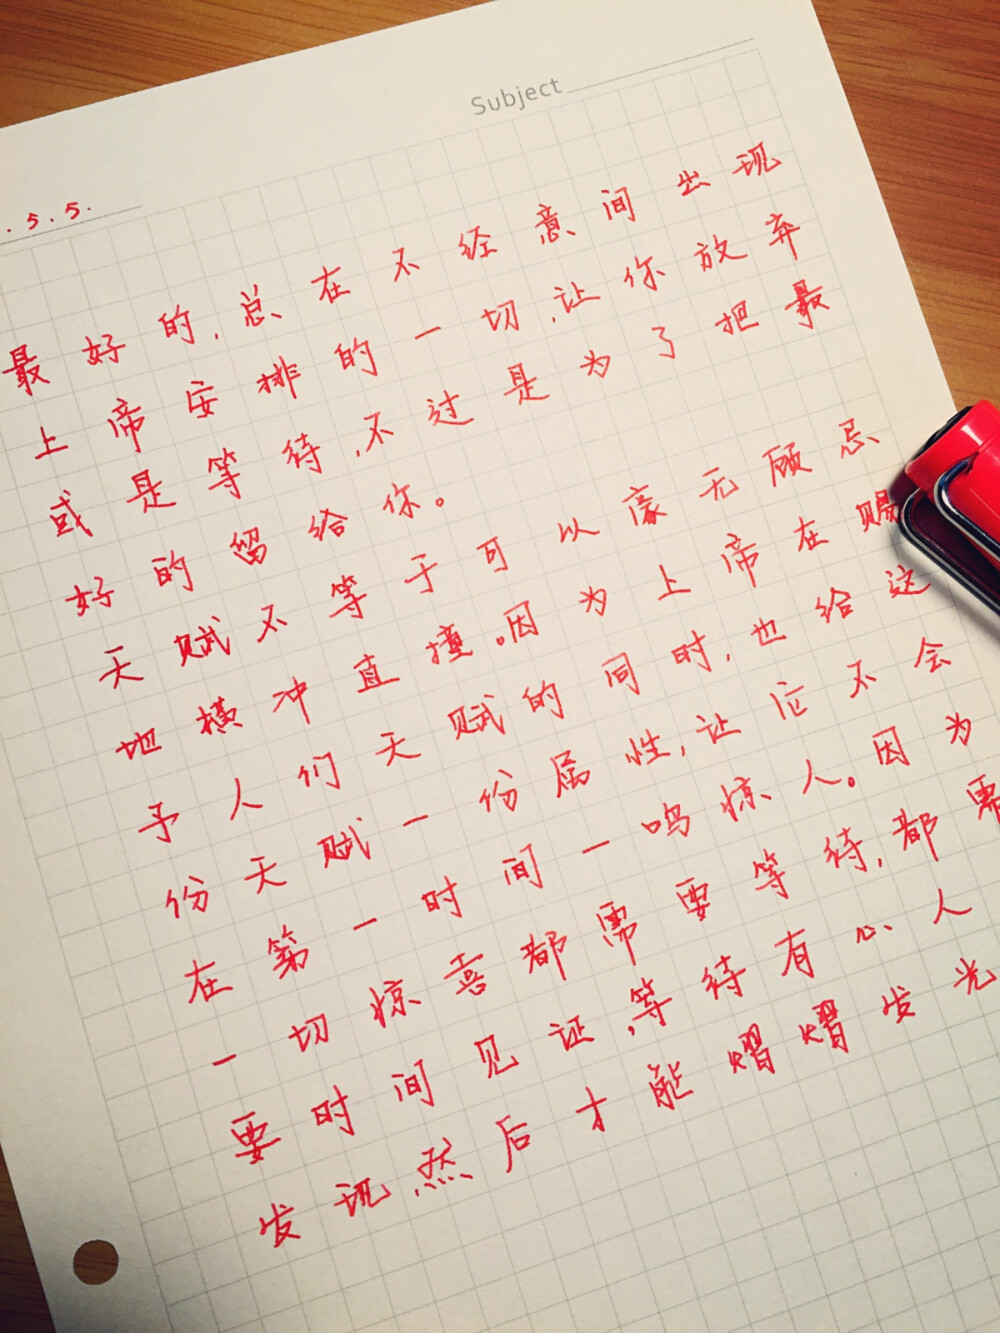 Subject
.5.5.
最好的,总在不经意间出现
上帝安排的一切,让你放弃
或是等待,不过是为了把最
好的留给你。
天赋不等于可以毫无顾忌
地横冲直撞。因为上帝在赐
予人们天赋的同时,也给这
份天赋一份属性,让它不会
在第一时间一鸣惊人。因为
一切惊喜都需要等待,都需
要时间见证,等待有心人
发现,然后才能熠熠发光